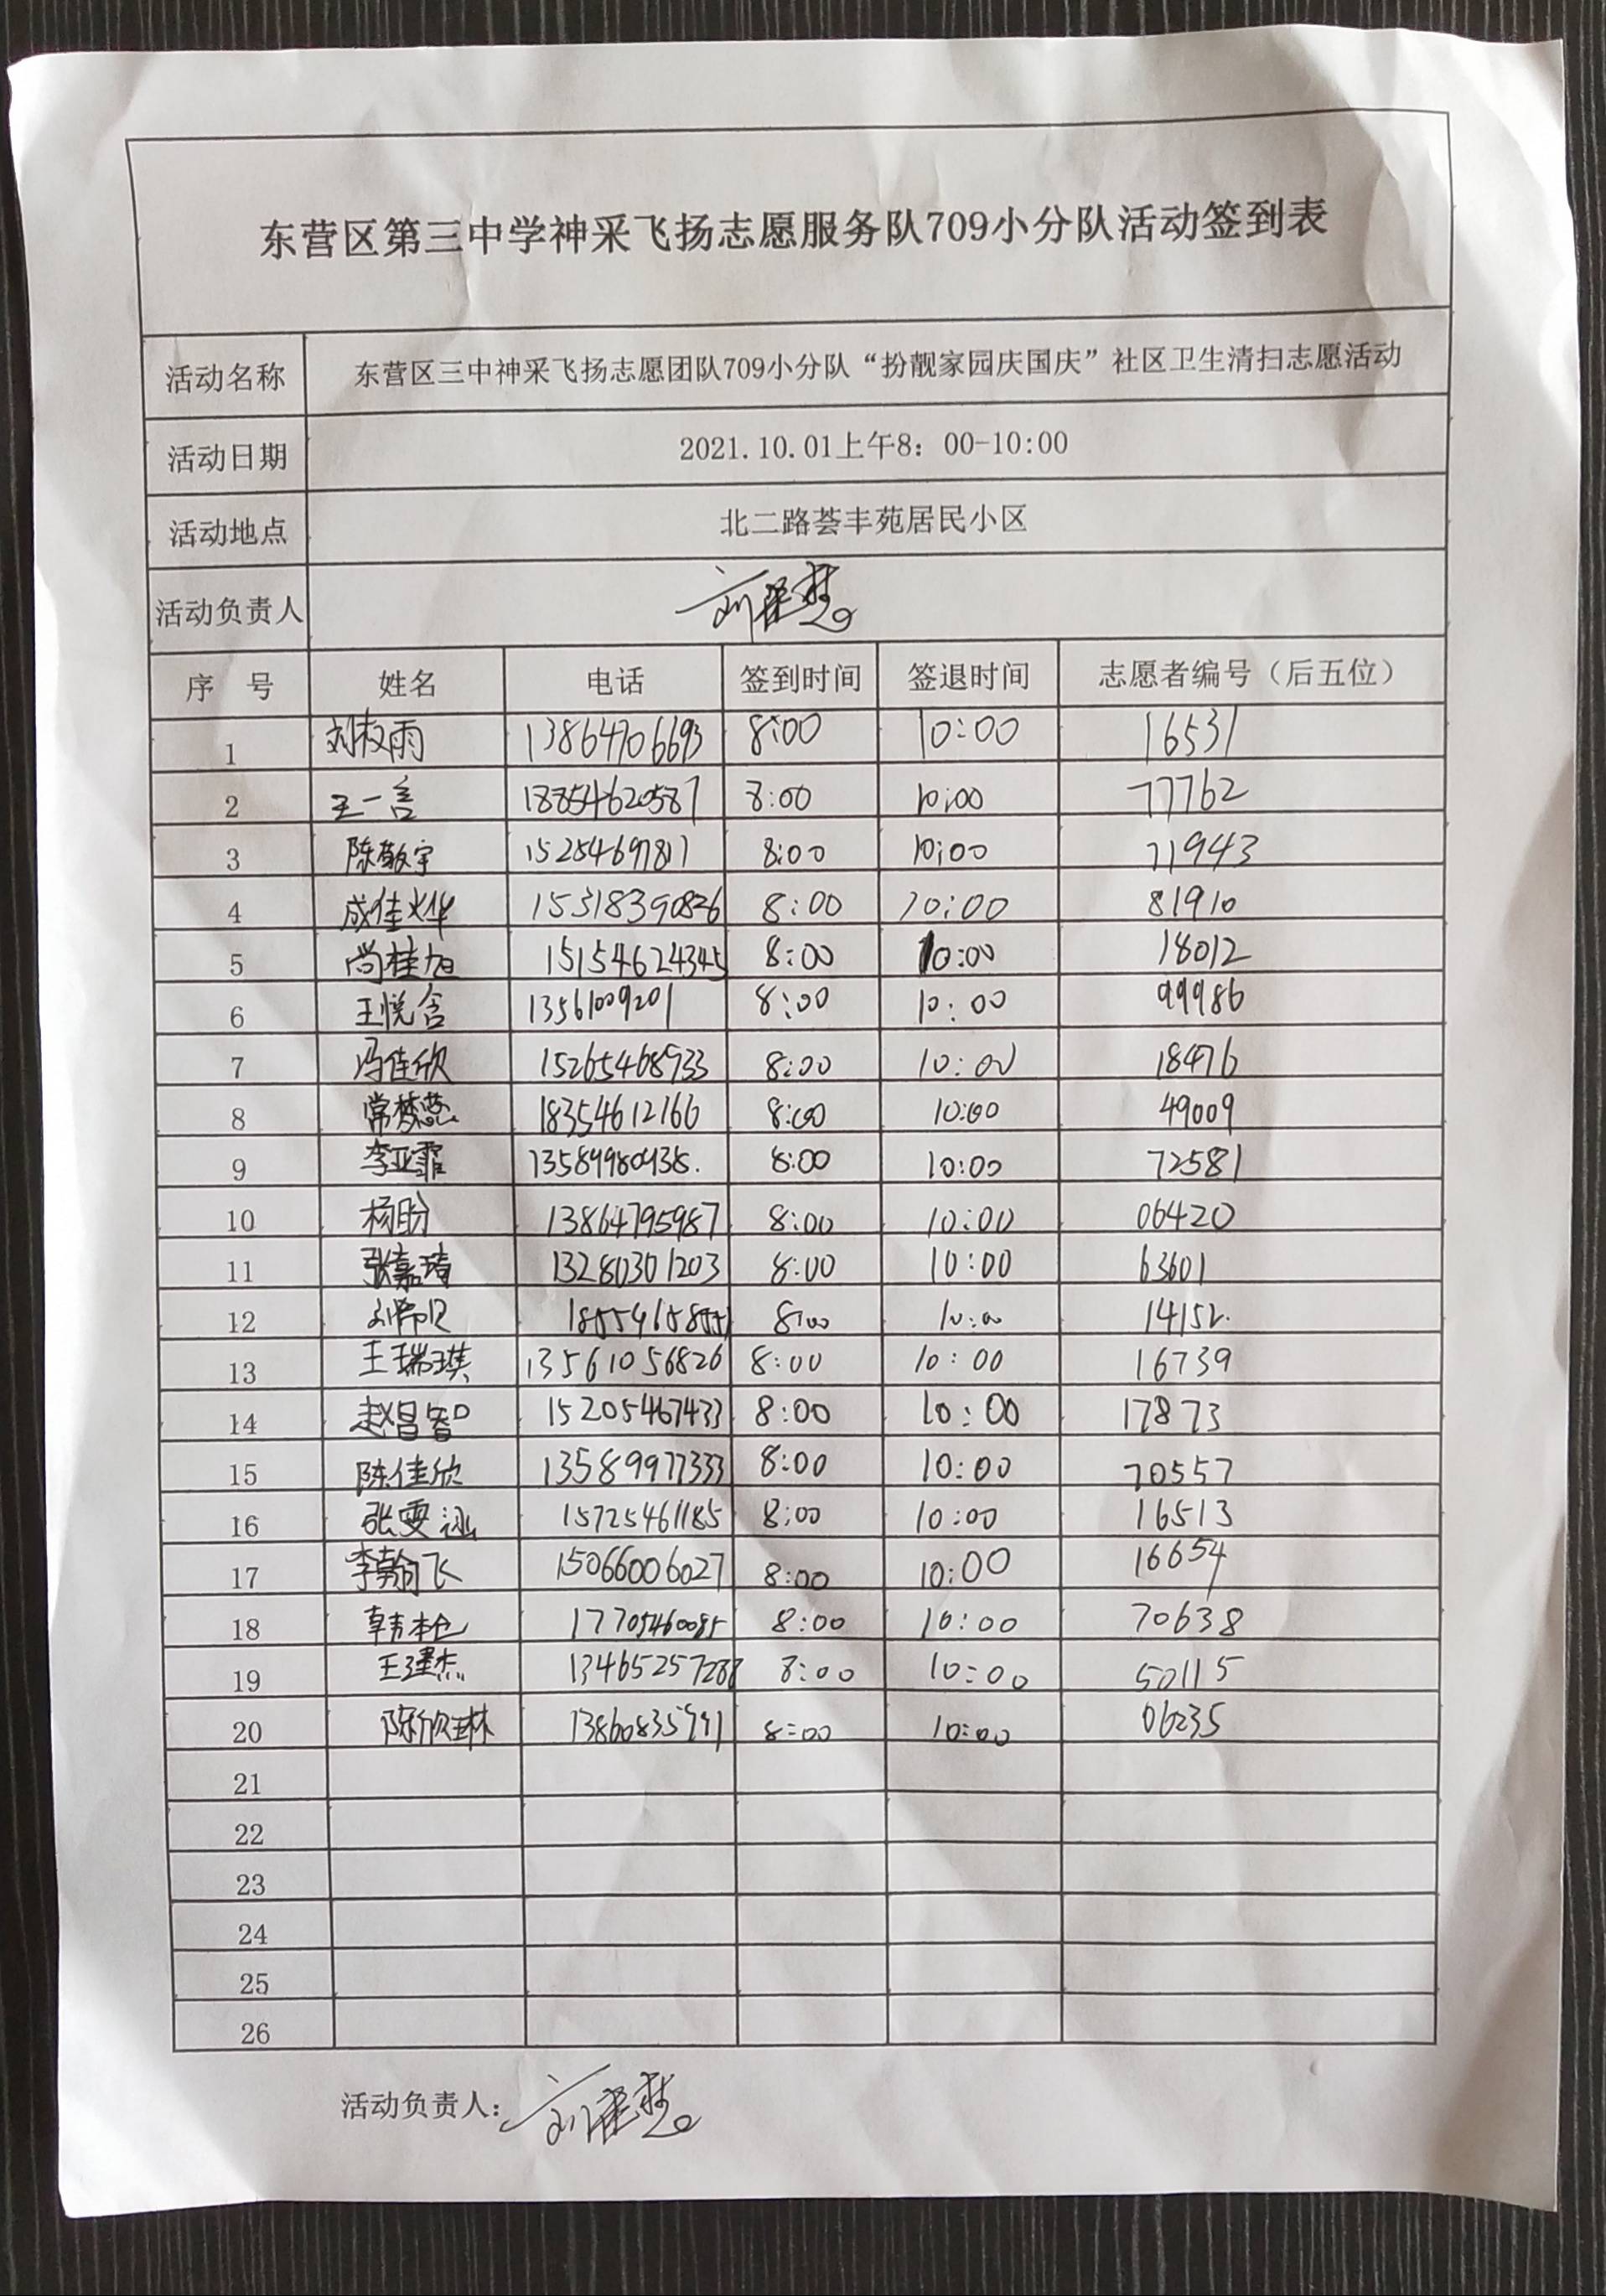 东营区第三中学神采飞扬志愿服务队709小分队活动签到表
活动名称 东营区三中神采飞扬志愿团队709小分队“扮靓家园庆国庆”社区卫生清扫志愿活动
活动日期 2021.10.01上午8：00-10:00
活动地点 北二路荟丰苑居民小区
活动负责人
序 号 姓名 电话 签到时间 签退时间 志愿者编号（后五位）
1 刘权雨 13864706693 8:00 10:00 16531
2 王一言 18854620587 8:00 10:00 77762
3 陈敬宇 15254697811 8:00 10:00 71943
4 成佳烨 15318390826 8:00 10:00 81910
5 尚桂旭 15154624345 8:00 10:00 18012
6 王悦含 13561009201 8:00 10:00 99986
7 冯佳欣 15265468933 8:00 10:00 18476
8 常梦蕊 18354612166 8:00 10:00 49009
9 李亚霏 13589980438. 8:00 10:00 72581
10 杨盼 13864795987 8:00 10:00 06420
11 张嘉琦 13280301203 8:00 10:00 63601
12 8:00 10:00 14152.
13 王瑞琪 13561056826 8:00 10:00 16739
14 赵昌智 15205467433 8:00 10:00 17873
15 陈佳欣 13589977333 8:00 10:00 70557
16 张雯 15725461185 8:00 10:00 16513
17 李翰飞 15066006027 8:00 10:00 16654
18 韩本仓 17705460085 8:00 10:00 70638
19 王建杰 13465257288 8:00 10:00 50115
20 陈欣琳 8:00 10:00 06235
21
22
23
24
25
26
活动负责人：